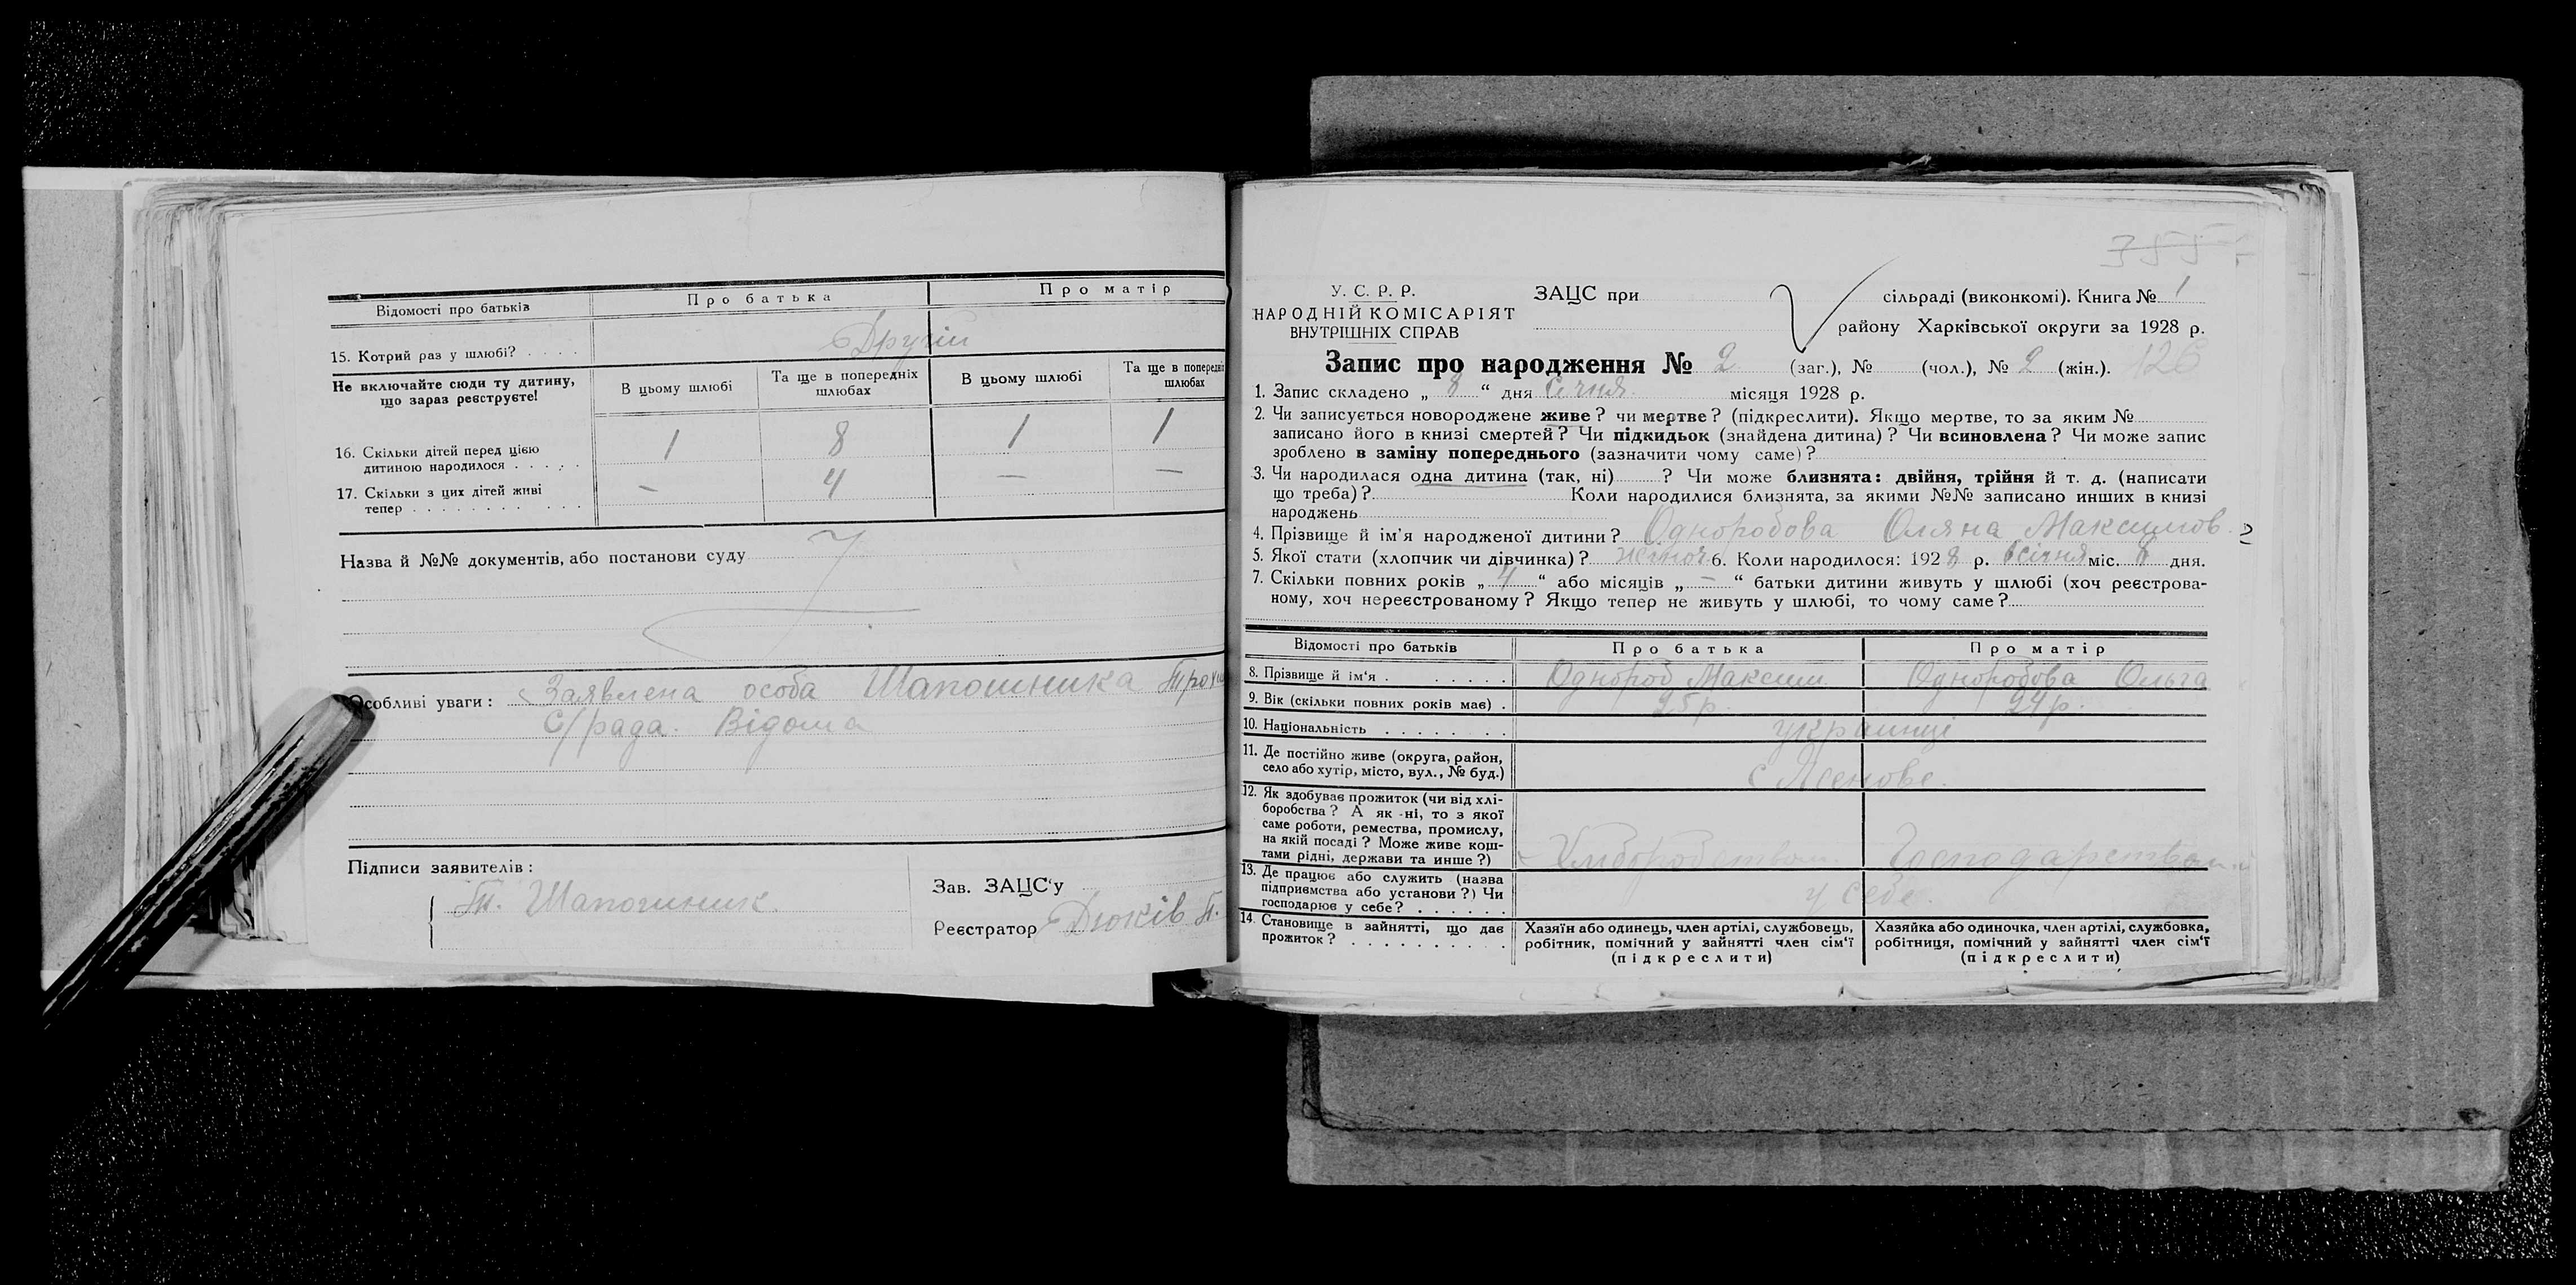 Відомості про батьків
Про батька
Про матір
15. Котрий раз у шлюбі? . . . .
Другий
Не включайте сюди ту дитину,
що зараз реєструєте!
В цьому шлюбі
Та ще в попередніх
шлюбах
В цьому шлюбі
Та ще в попередні
шлюбах
16. Скільки дітей перед цією
дитиною народилося . . . . .
1
8
1
1
17. Скільки з цих дітей живі
тепер . . . . . . . . . . .
–
4
–
–
Назва й №№ документів, або постанови суду
Особливі уваги: Заявлена особа Шапошника
С/рада. Відома
Підписи заявителів:
Т. Шапошник
Зав. ЗАЦС'у
Реєстратор Дюків П.
355
У. С. Р. Р.
НАРОДНІЙ КОМІСАРІЯТ
ВНУТРІШНІХ СПРАВ
ЗАЦС при
сільраді (виконкомі). Книга № 1
району Харківської округи за 1928 р.
Запис про народження № 2 (заг.), № (чол.), № 2 (жін.). 126
1. Запис складено „ 8 “ дня Січня місяця 1928 р.
2. Чи записується новороджене живе? чи мертве? (підкреслити). Якщо мертве, то за яким №
записано його в книзі смертей? Чи підкидьок (знайдена дитина)? Чи всиновлена? Чи може запис
зроблено в заміну попереднього (зазначити чому саме)?
3. Чи народилася одна дитина (так, ні) ? Чи може близнята: двійня, трійня й т. д. (написати
що треба)? Коли народилися близнята, за якими №№ записано инших в книзі
народжень
4. Прізвище й ім'я народженої дитини? Одноробова Оляна Максимов.
5. Якої стати (хлопчик чи дівчинка)? жіноч 6. Коли народилося: 1928 р. січня міс. 6 дня.
7. Скільки повних років „ 4 “ або місяців „ – “ батьки дитини живуть у шлюбі (хоч реєстрова-
ному, хоч нереєстрованому? Якщо тепер не живуть у шлюбі, то чому саме?
Відомості про батьків
Про батька
Про матір
8. Прізвище й ім'я . . . . . . .
Однороб Максим
Одноробова Ольга
9. Вік (скільки повних років має) .
25 р.
24 р.
10. Національність . . . . . . . .
українці
11. Де постійно живе (округа, район,
село або хутір, місто, вул., № буд.)
12. Як здобуває прожиток (чи від хлі-
боробства? А як -ні, то з якої
саме роботи, ремества, промислу,
на якій посаді? Може живе кош-
тами рідні, держави та инше?)
Хліборобством
Господарством
13. Де працює або служить (назва
підприємства або установи?) Чи
господарює у себе? . . . . . .
у себе.
14. Становище в зайнятті, що дає
прожиток? . . . . . . . . . .
Хазяїн або одинець, член артілі, службовець,
робітник, помічний у зайнятті член сім'ї
(підкреслити)
Хазяйка або одиночка, член артілі, службовка,
робітниця, помічний у зайнятті член сім'ї
(підкреслити)